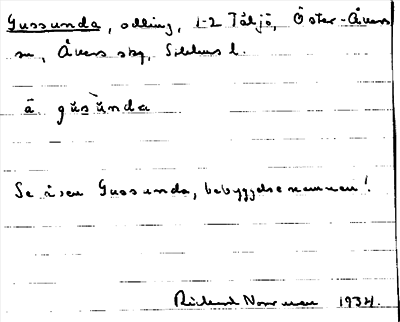 Gussunda, odling, 1-2 Täljö, Öster-Åkers
sn, Åkers skg, Sthlms l.
å gùsùnda
Se även Gussunda, bebyggelsenamnen!
Rickard Norrman 1934.